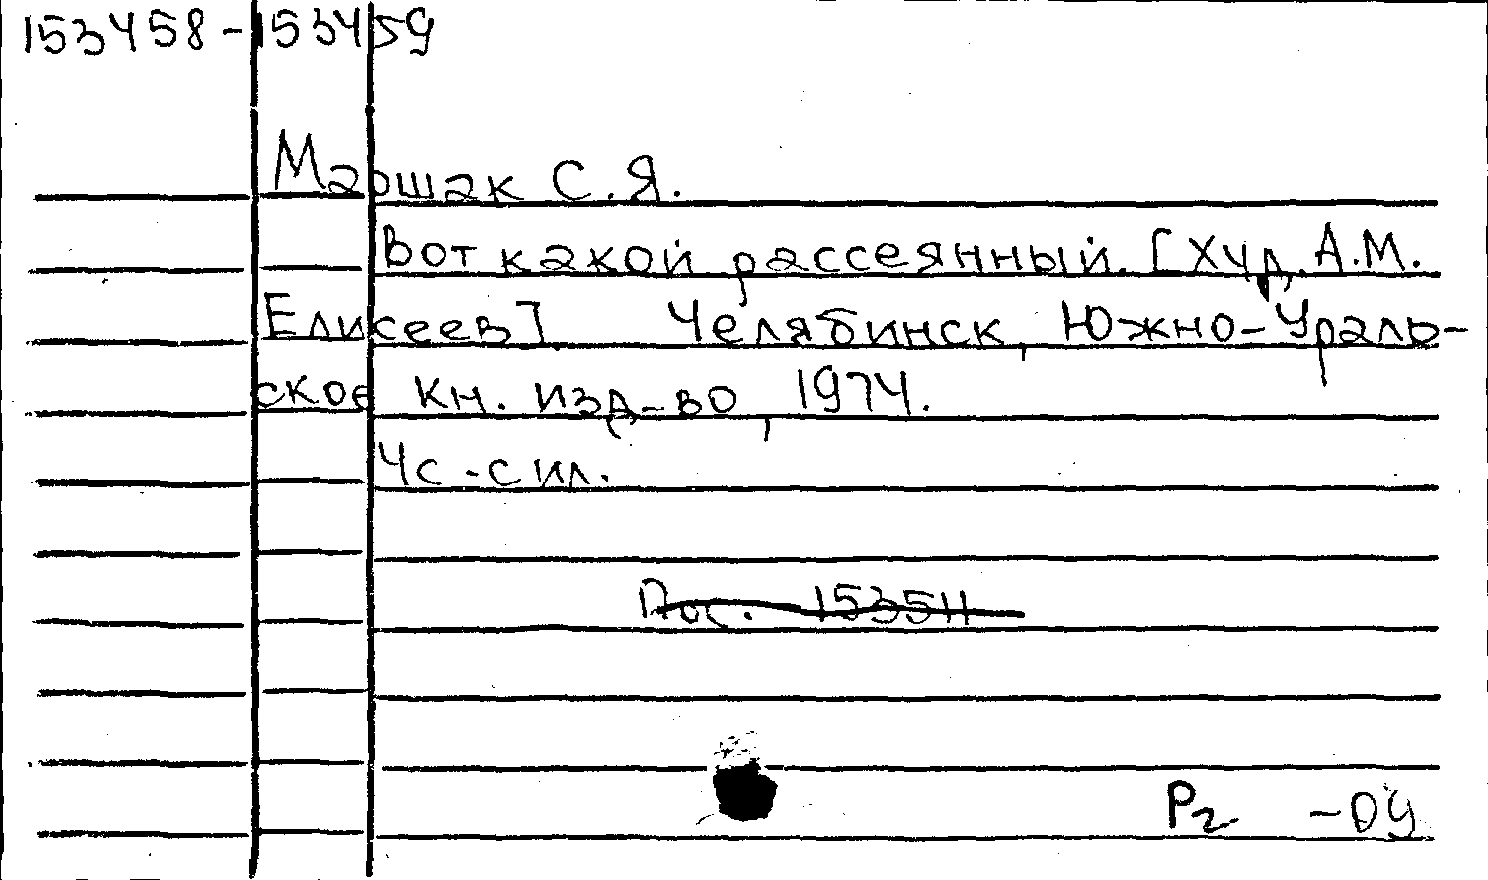 153458-153459
Маршак С.Я.
Вот какой рассеянный. [Худ. А.М.
Елисеев]. Челябинск, Южно-Ураль-
ское кн. изд-во, 1974.
4с. с ил.
Пос. 153511
Р2 -09